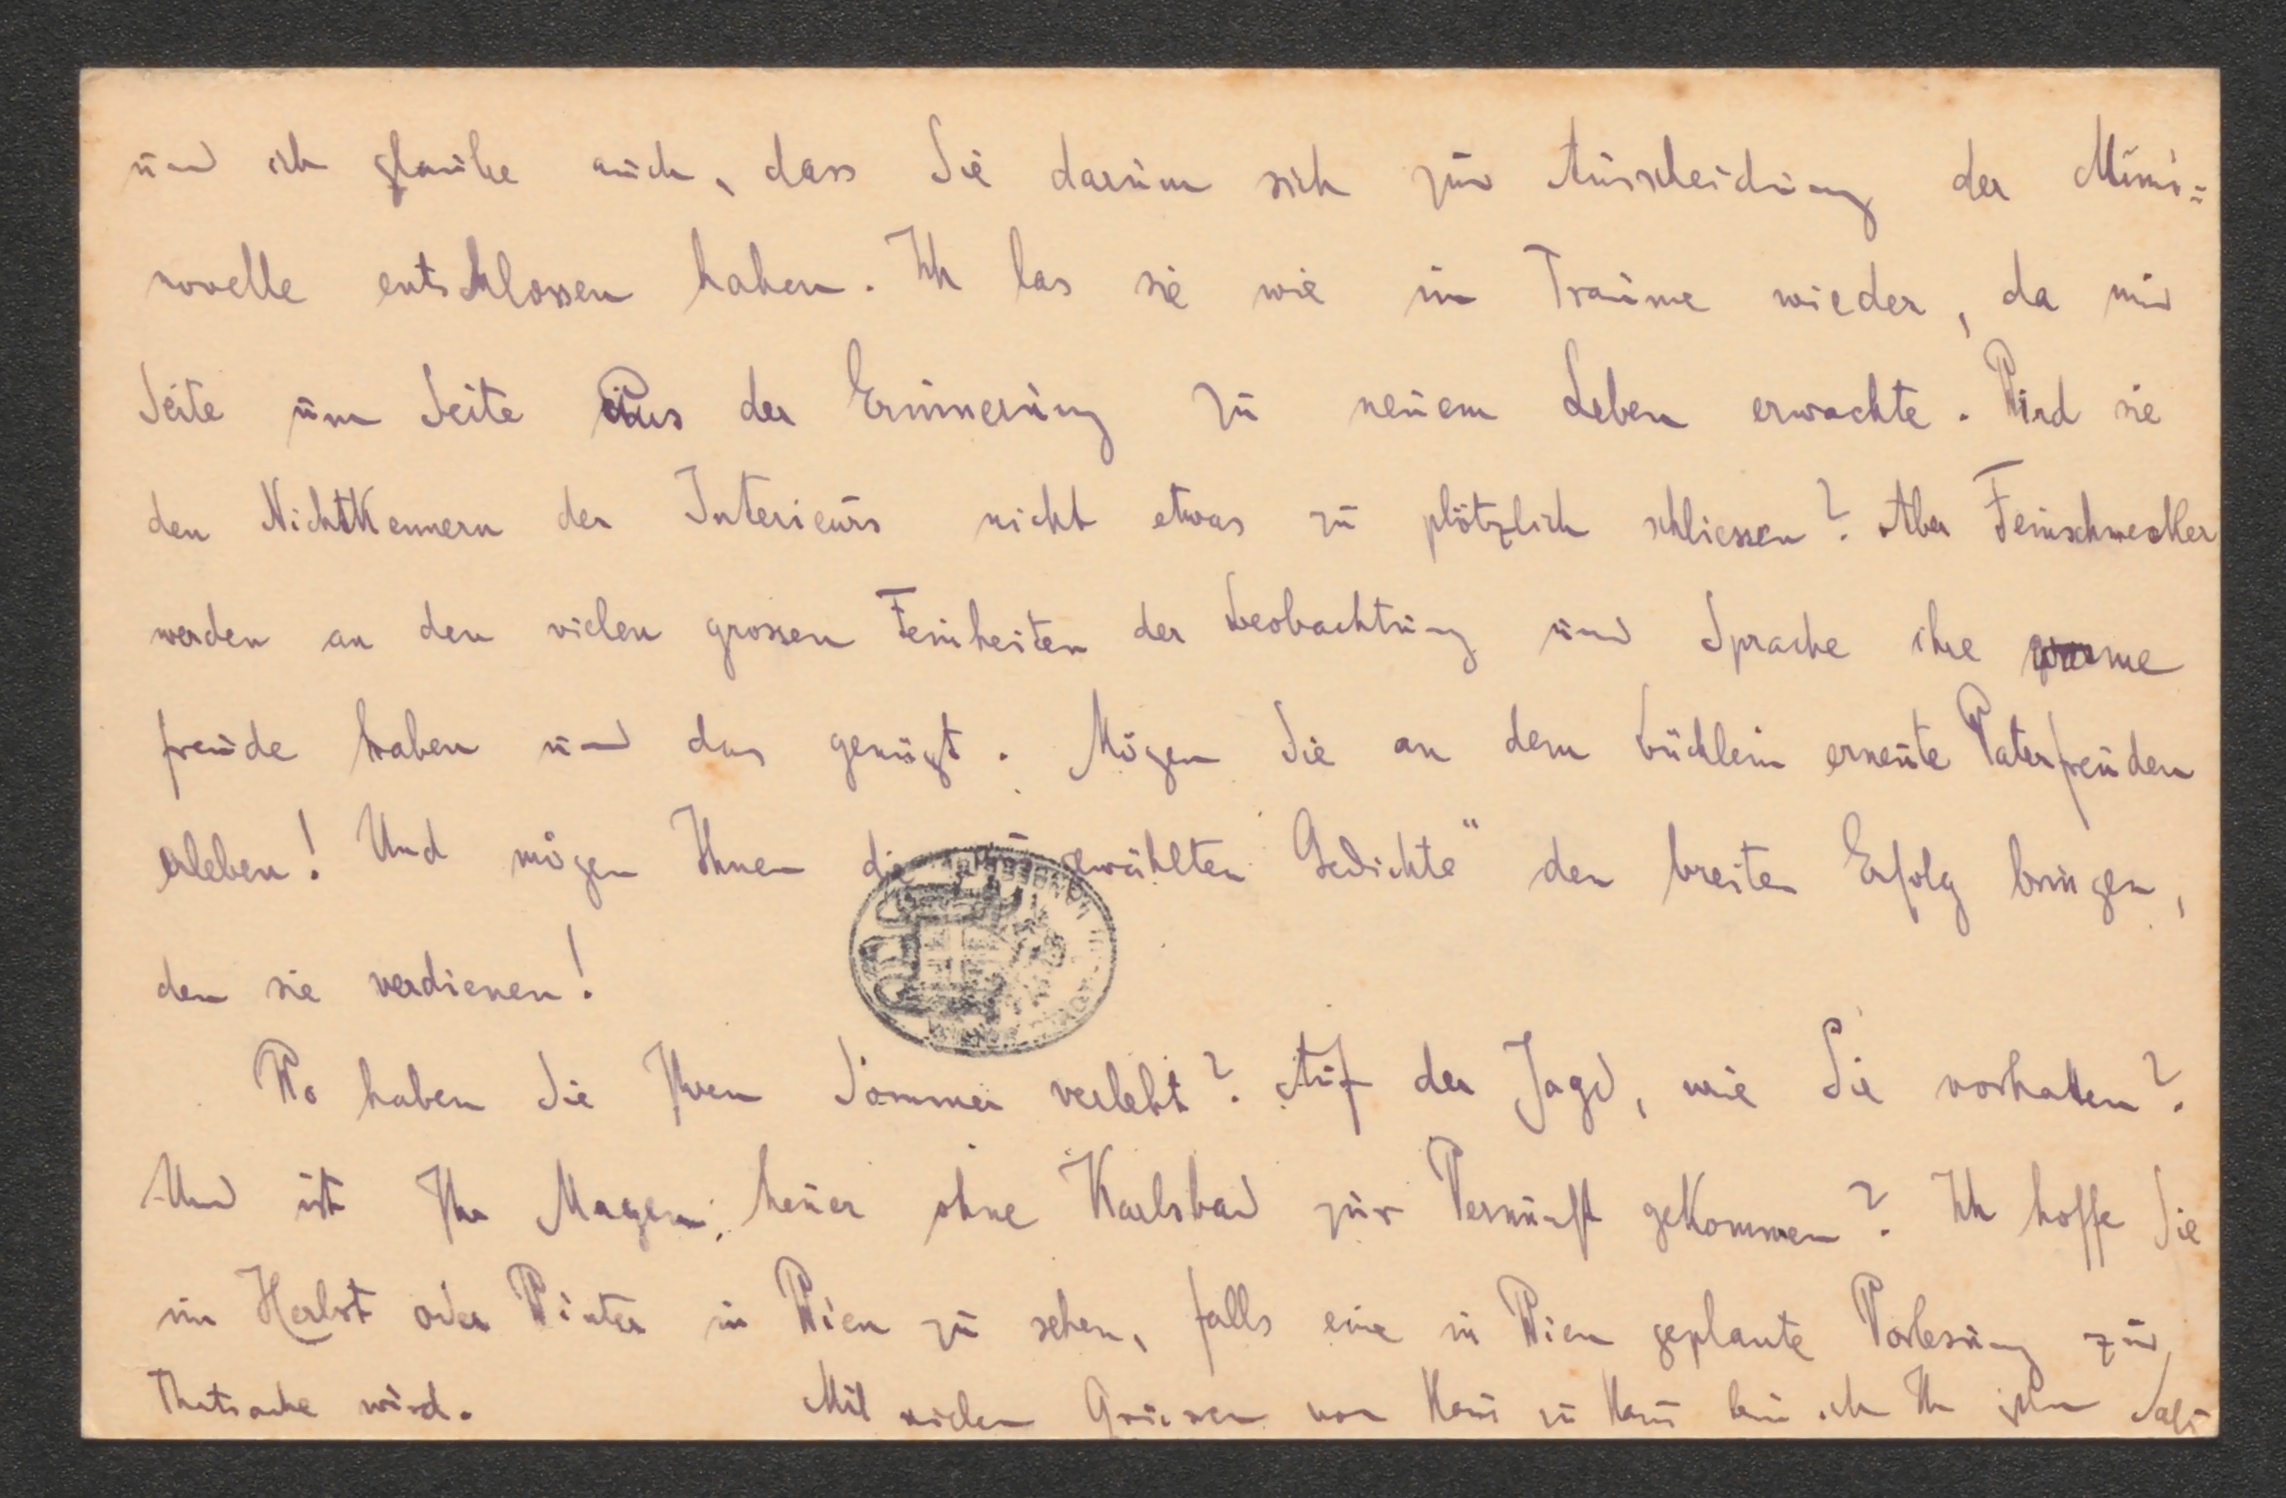 und ich glaube auch, dass Sie darum sich zur Ausscheidung der Mimi=
novelle entschlossen haben. Ich las sie wie im Traume wieder, da mir
Seite um Seite aus der Erinnerung zu neuem Leben erwachte. Wird sie
den NichtKennern der Interieurs nicht etwas zu plötzlich schliessen? Aber Feinschmecker
werden an den vielen grossen Feinheiten der Beobachtung und Sprache ihre
freude haben und das genügt. Mögen Sie an dem Büchlein erneute Vaterfreuden
erleben! Und mögen Ihnen die gewählten Gedichte" den breiten Erfolg bringen,
den sie verdienen!
Wo haben Sie Ihren Sommer verlebt? Auf der Jagd, wie Sie vorhatten?
Und ist Ihr Magen heuer ohne Karlsbad zur Vernunft gekommen? Ich hoffe Sie
im Herbst oder Winter in Wien zu sehen, falls eine in Wien geplante Vorlesung zur
Thatsache wird. Mit vielen Grüssen von Haus zu Haus bin ich Ihr